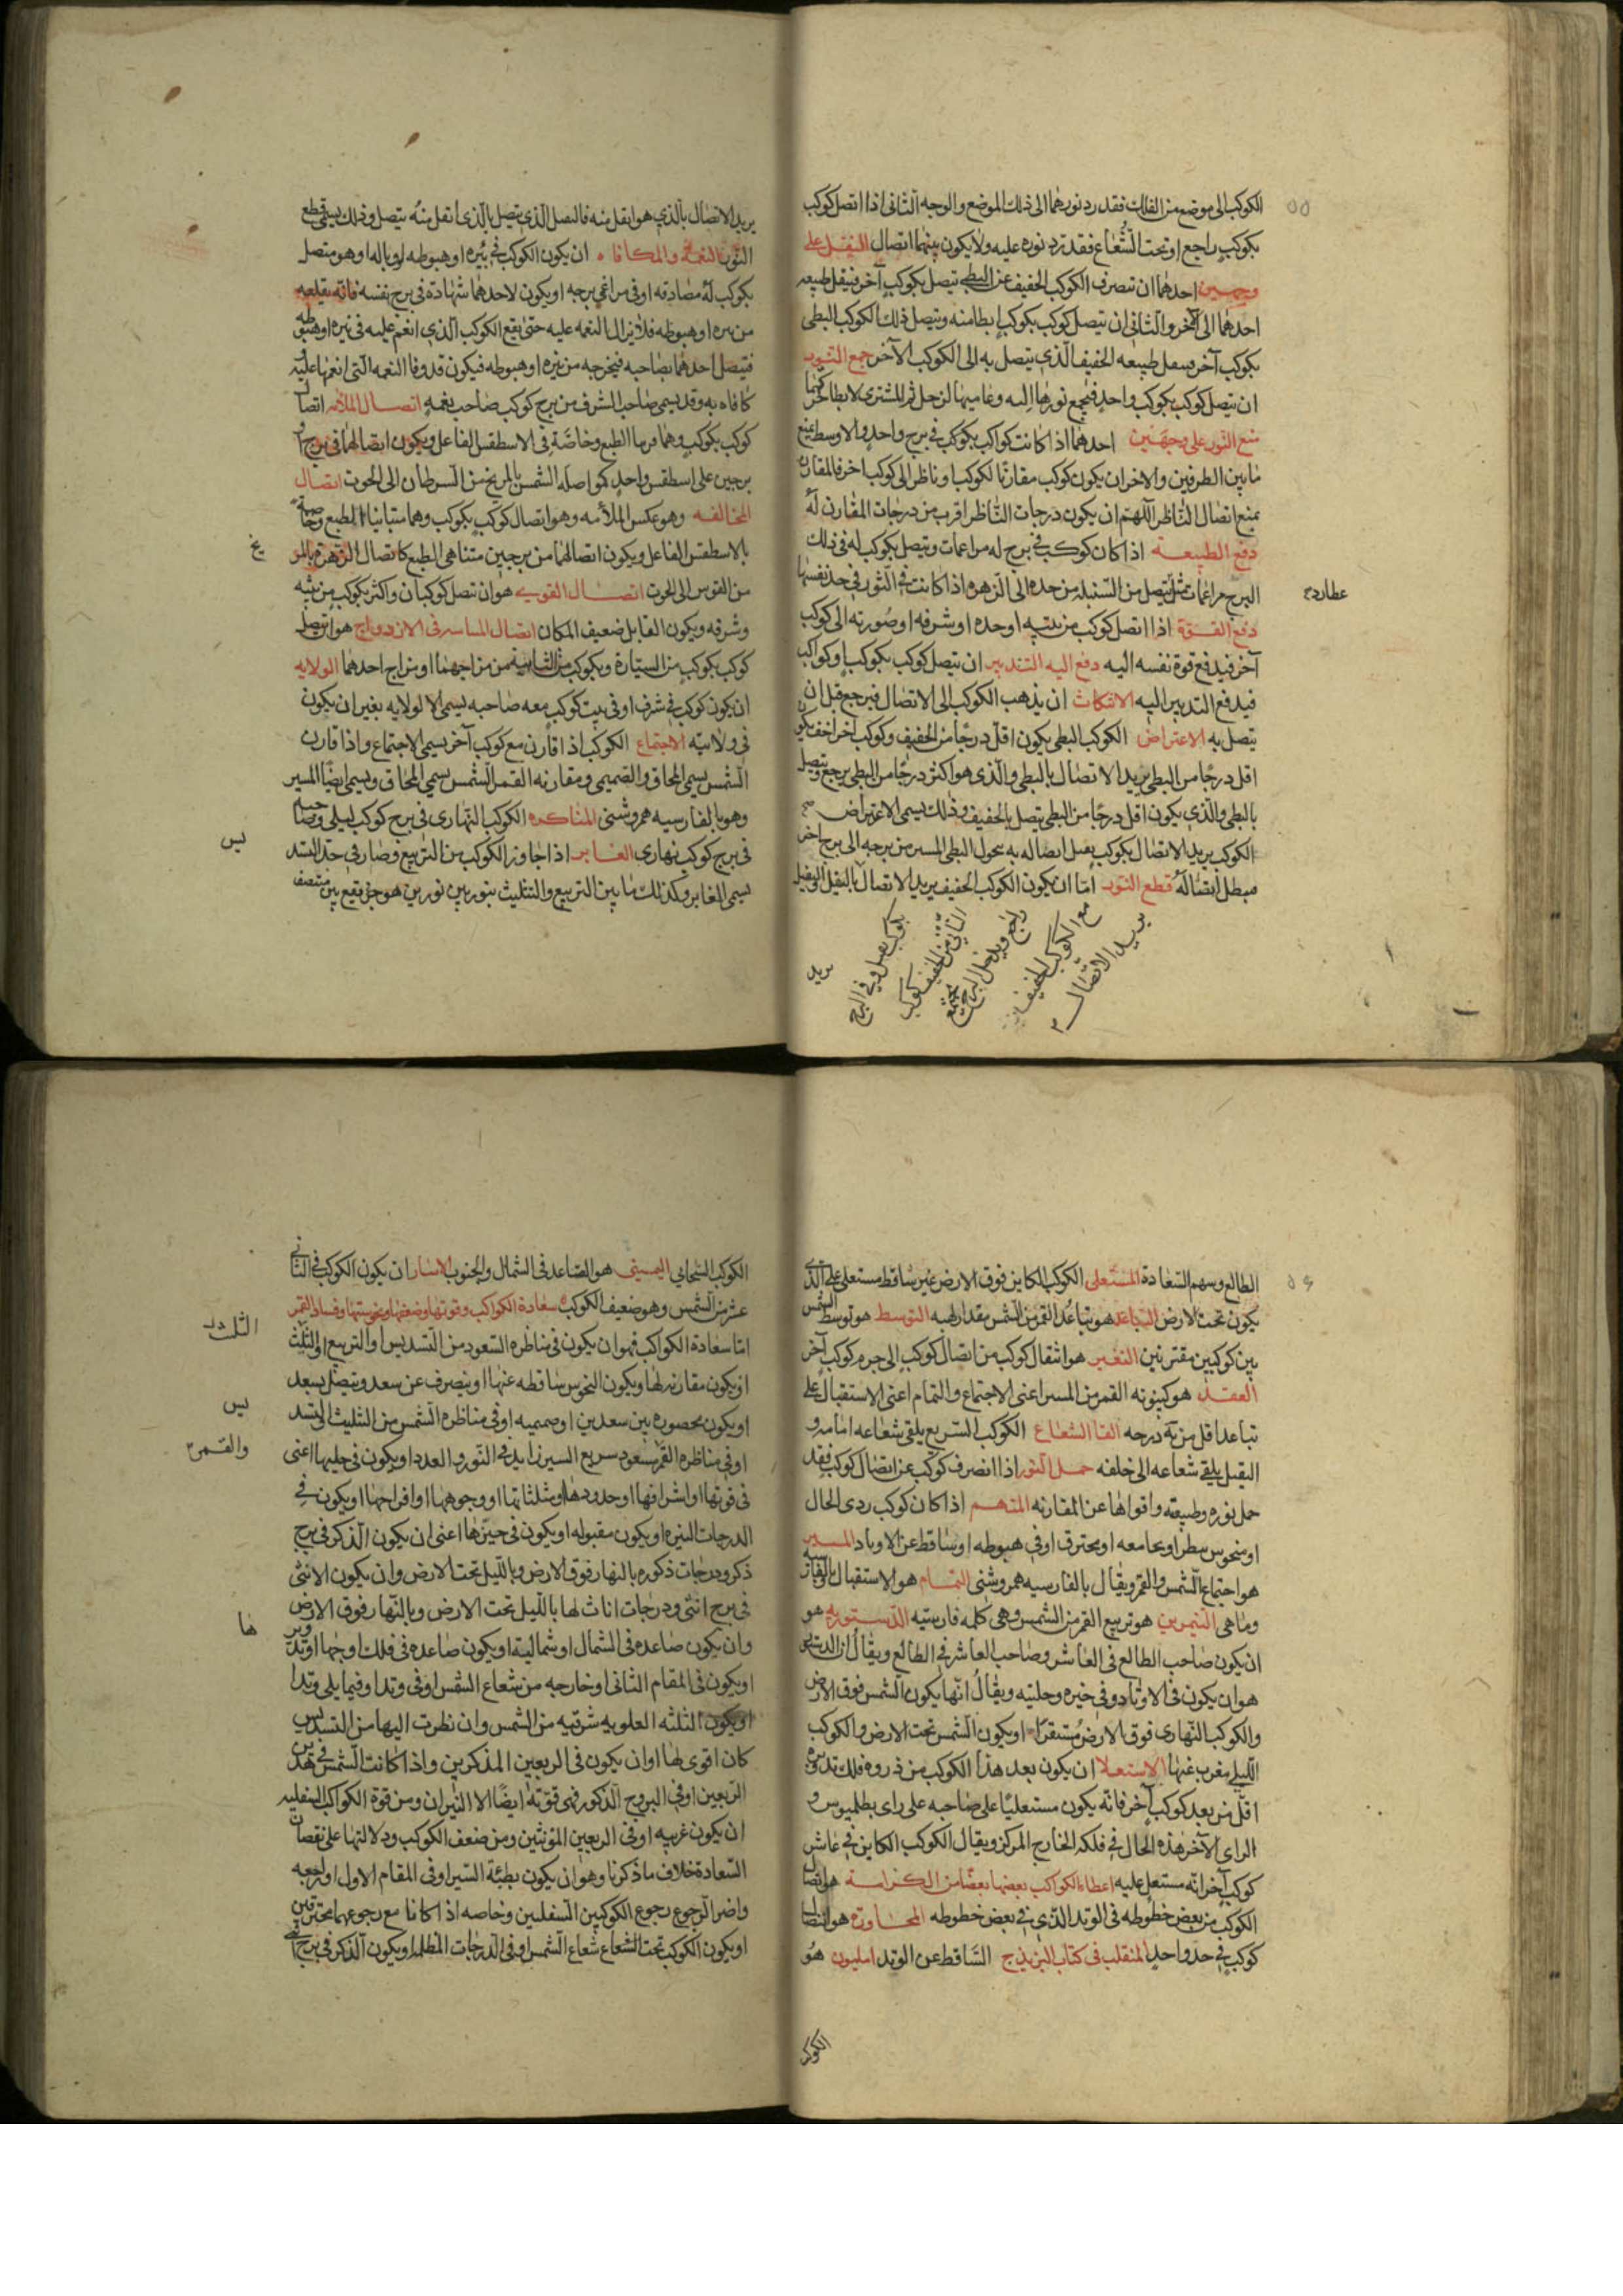 ٥٥
الكوكب الى موضع من الفلك فقد رد نورهما الى ذلك الموضع والوجه الثانى اذا اتصل كوكب
بكوكب راجع او تحت الشعاع فقد ترد نوره عليه ولا يكون بينهما اتصال النقل على
وجهين احدهما ان تنصرف الكوكب الخفيف عن البطى يتصل بكوكب آخر فينقل طبيعه
احدهما الى الآخر والثانى ان يتصل كوكب بكوكب ابطا منه ويتصل ذلك الكوكب البطى
بكوكب آخر فينقل طبيعه الخفيف الذى يتصل به الى الكوكب الآخر جمع النور
ان يتصل كوكب بكوكب واحد فيجمع نورها اليه وعاميها لزحل ثم للمشترى لابطا حركتهما
منع النور على وجهين احدهما اذا كانت كواكب بكوكب فى برج واحد والاوسط يمنع
ما بين الطرفين والاخر ان يكون كوكب مقارنا لكوكب او ناظر الى كوكب اخر فالمقارن
يمنع اتصال الناظر اللهم ان يكون درجات الناظر اقرب من درجات المقارن له
دفع الطبيعة اذا كان كوكب فى برج له مراعمات ويتصل بكوكب له فى ذلك
البرج مراعمات مثل يتصل من السنبله من حده الى الزهره اذا كانت فى الثور فى حد نفسها
عطارد
دفع القوة اذا اتصل كوكب من بيته او حده او شرفه او صورته الى كوكب
آخر فيدفع قوة نفسه اليه دفع اليه التدبير ان يتصل كوكب بكوكب او كواكب
فيدفع التدبير اليه الانتكاث ان يذهب الكوكب الى الاتصال فيرجع قبل ان
يتصل به الاعتراض الكوكب البطى يكون اقل درجا من الخفيف وكوكب اخر اخف يكون
اقل درجا من البطى يريد الاتصال بالبطى والذى هو اكثر درجا من البطى يرجع ويتصل
بالبطى والذى يكون اقل درجا من البطى يتصل بالخفيف وذلك يسمى الاعتراض
الكوكب يريد الاتصال بكوكب يقبل اتصاله به يحول البطى المسير من برجه الى برج اخر
فيبطل اتصاله قطع النور اما ان يكون الكوكب الخفيف يريد الاتصال بالثقيل او الثقيل
يريد الاتصال
مع الكوكب الخفيف
راجع ويدخل البرج يجتمع
الثانى من الخفيف كوكب
بكوكب يصل وفى البرج
يريد
يريد الاتصال بالذى هو اثقل منه فالمتصل الذى يتصل بالذى اثقل منه يتصل وذلك يسمى قطع
النور النعمة والمكافاه ان يكون الكوكب فى بئره او هبوطه او وباله او هو متصل
بكوكب له مصادقه او فى مراغى برجه او يكون لاحدهما شهادة فى برج نفسه فانه يقلعه
من بيره او هبوطه فلا يزال النعمه عليه حتى يقع الكوكب الذى انعم عليه فى بيره او هبوطه
فيتصل احدهما بصاحبه فيخرجه من بيره او هبوطه فيكون قد وفا النعمه التى انعمها عليه
كافاه به وقد يسمى صاحب الشرف من برج كوكب صاحب نعمه اتصال الملأمه اتصال
كوكب بكوكب وهما الطبع وخاصة فى الاسطقس الفاعل ويكون اتصالهما فى برج او
برجين على اسطقس واحد كمواصله الشمس بالمريخ من السرطان الى الحوت اتصال
المخالفه وهو عكس الملأمه وهو اتصال كوكب بكوكب وهما متباينا الطبع وخاصة
بالاسطقس الفاعل ويكون اتصالهما من برجين متناهى الطبع كاتصال الزهرة بالمر
يخ
من القوس الى الحوت اتصال القوى هو ان تتصل كوكبان واكثر بكوكب من بيته
وشرفه ويكون القابل ضعيف المكان اتصال المناسبه فى الازدواج هو ان يتصل
كوكب بكوكب من السيارة وبكوكب من الثابتة ممن مزاجهما او مزاج احدهما الولايه
ان يكون كوكب فى شرف او فى بيت كوكب معه صاحبه يسمى الا لولايه بغير ان يكون
فى ولايته الاجتماع الكوكب اذا قارن مع كوكب آخر يسمى الاجتماع واذا قارن
الشمس يسمى المحاق والصميمى ومقارنه القمر الشمس يسمى المحاق ويسمى ايضا المسير
وهو بالفارسيه همروشنى المناكره الكوكب النهارى فى برج كوكب ليلى وصاحبه
فى برج كوكب نهارى الغابر اذا جاوز الكوكب من التربيع وصار فى حد التسد
يس
يسمى الغابر وكذلك ما بين التربيع والتثليث بنوربين نوربين هو جزء يقع بين منتصف
٥٦
الطالع وسهم السعادة المستعلى الكوكب الكاين فوق الارض غير ساقط مستعلى على الذى
يكون تحت الارض التباعد هو تباعد القمر من الشمس مقدار لهبه التوسط هو توسط الشمس
بين كوكبين مقترنين التغير هو انتقال كوكب من اتصال كوكب الى جرم كوكب آخر
العقد هو كينونه القمر من المسير اعنى الاجتماع والتمام اعنى الاستقبال على
تباعد اقل من ٦ درجه القا الشعاع الكوكب السريع يلقى شعاعه امامه و
الثقيل يلقى شعاعه الى خلفه حمل النور اذا انصرف كوكب عن اتصال كوكب فقد
حمل نوره وطبيعته واقواها عن المقارنه المتهم اذا كان كوكب ردى الحال
او منحوس بنظر او بجامعه او محترق او فى هبوطه او ساقط عن الاوتاد المسير
هو اجتماع الشمس والقمر ويقال بالفارسيه همروشنى التمام هو الاستقبال بالفارسيه
وماهى النيمرين هو تربيع القمر من الشمس وهى كلمه فارسيه الدستوريه هو
ان يكون صاحب الطالع فى العاشر وصاحب العاشر فى الطالع ويقال ان الدستوريه
هو ان يكون فى الاوتاد وفى حيزه وحليته ويقال انها يكون الشمس فوق الارض
والكوكب النهارى فوق الارض مستقرا او يكون الشمس تحت الارض والكوكب
الليلى مغرب عنها الاستعلا ان يكون بعد هذا الكوكب من ذروه فلك تدويره
اقل من بعد كوكب آخر فانه يكون مستعليا على صاحبه على راى بطلميوس و
الراى الآخر هذه الحال فى فلكه الخارج المركز ويقال الكوكب الكاين فى عاشر
كوكب آخر انه مستعل عليه اعطا الكواكب بعضها بعضا من الكرامه هو اتصال
الكوكب من بعض خطوطه فى الوتد الذى فى بعض خطوطه المحاورة هو اتصال
كوكب فى حد واحد المنقلب فى كتاب البزيذج الساقط عن الوتد امليون هو
الكوكب
الكوكب السحابى اليمينى هو الصاعد فى الشمال والجنوب الاسار ان يكون الكوكب فى الثانى
عشر من الشمس وهو ضعيف الكوكب سعادة الكواكب وقوتها وضعفها ونحوستها وفساد القمر
اما سعادة الكواكب فهو ان يكون فى مناظره السعود من التسديس او التربيع او التثليث
الثلث
او يكون مقارنه لها ويكون النحوس ساقطه عنها او ينصرف عن سعد ويتصل بسعد
او يكون محصوره بين سعدين او صميميه او فى مناظره الشمس من التثليث او التسد
يس
او فى مناظره القمر مسعود سريع السير زايد فى النور والعدد او يكون فى حليها اعنى
والقمر
فى قوتها او اشرافها او حدودها او مثلثاتها او وجوهها او افراحها او يكون فى
الدرجات النيره او يكون مقبوله او يكون فى حيزها اعنى ان يكون الذكر فى برج
ذكر ودرجات ذكوره بالنهار فوق الارض وبالليل تحت الارض وان يكون الانثى
فى برج انثى ودرجات اناث لها بالليل تحت الارض وبالنهار فوق الارض
وان يكون صاعده فى الشمال او شماليه او يكون صاعده فى فلك اوجها او تدوير
ها
او يكون فى المقام الثانى او خارجه من شعاع الشمس او فى وتد او فيما يلى وتدا
او يكون الثلثه العلويه شرقيه من الشمس وان نظرت اليها من التسديس
كان اقوى لها او ان يكون فى الربعين المذكرين واذا كانت الشمس فى هذين
الربعين او فى البروج الذكور فهى قوته ايضا الا النيران ومن قوة الكواكب السفليه
ان يكون غربيه او فى الربعين المونثين ومن ضعف الكوكب ودلالتها على نقصان
السعادة خلاف ما ذكرنا وهو ان يكون بطيئة السير او فى المقام الاول او راجعه
واضر الرجوع رجوع الكوكبين السفليين وخاصه اذا كانا مع رجوعهما محترقين
او يكون الكوكب تحت الشعاع شعاع الشمس او فى الدرجات المظلمه او يكون الذكر فى برج انثى